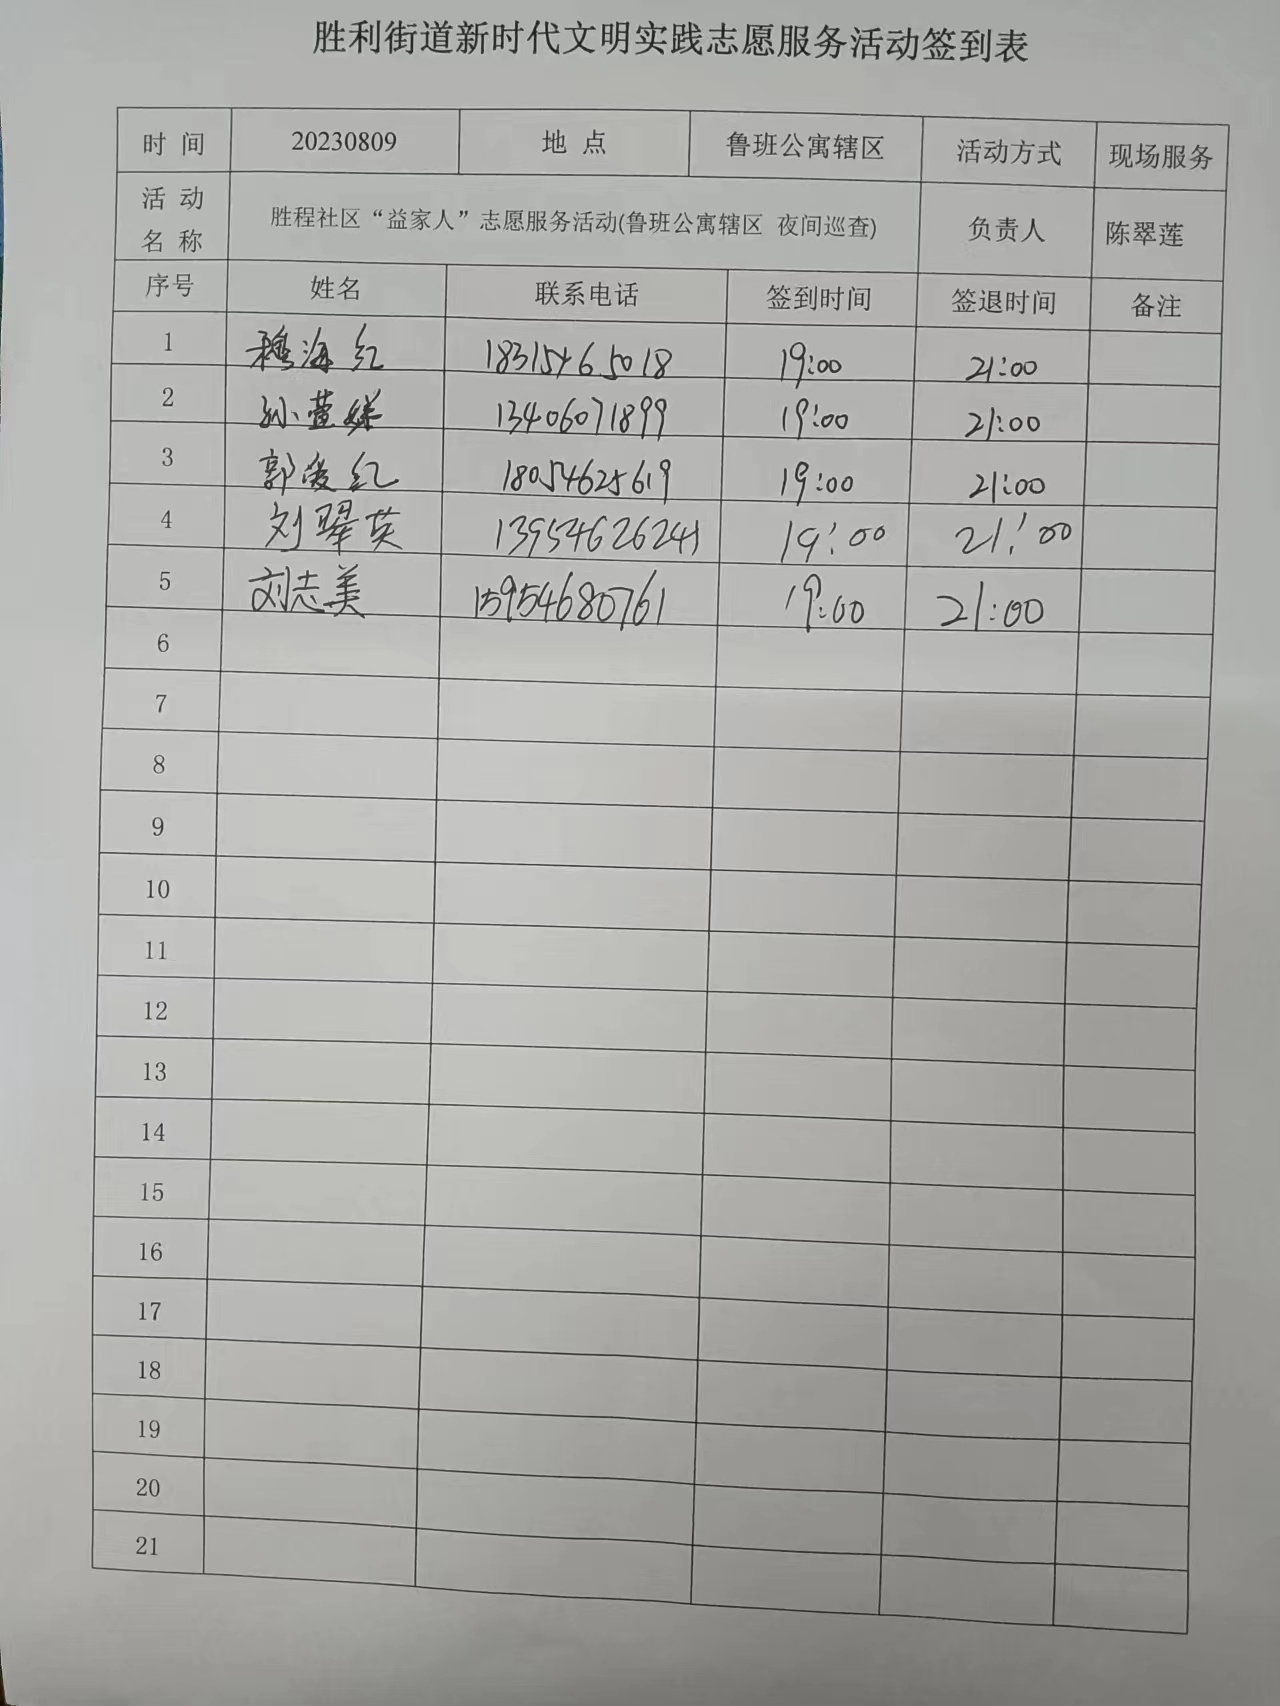 胜利街道新时代文明实践志愿服务活动签到表
时 间 20230809 地 点 鲁班公寓辖区 活动方式 现场服务
活 动 名 称 胜程社区“益家人”志愿服务活动(鲁班公寓辖区 夜间巡查) 负责人 陈翠莲
序号 姓名 联系电话 签到时间 签退时间 备注
1 穆海红 18315465018 19:00 21:00
2 孙萱 13406071899 19:00 21:00
3 郭爱红 18054625619 19:00 21:00
4 刘翠英 13954626241 19:00 21:00
5 刘志美 15954680761 19:00 21:00
6
7
8
9
10
11
12
13
14
15
16
17
18
19
20
21